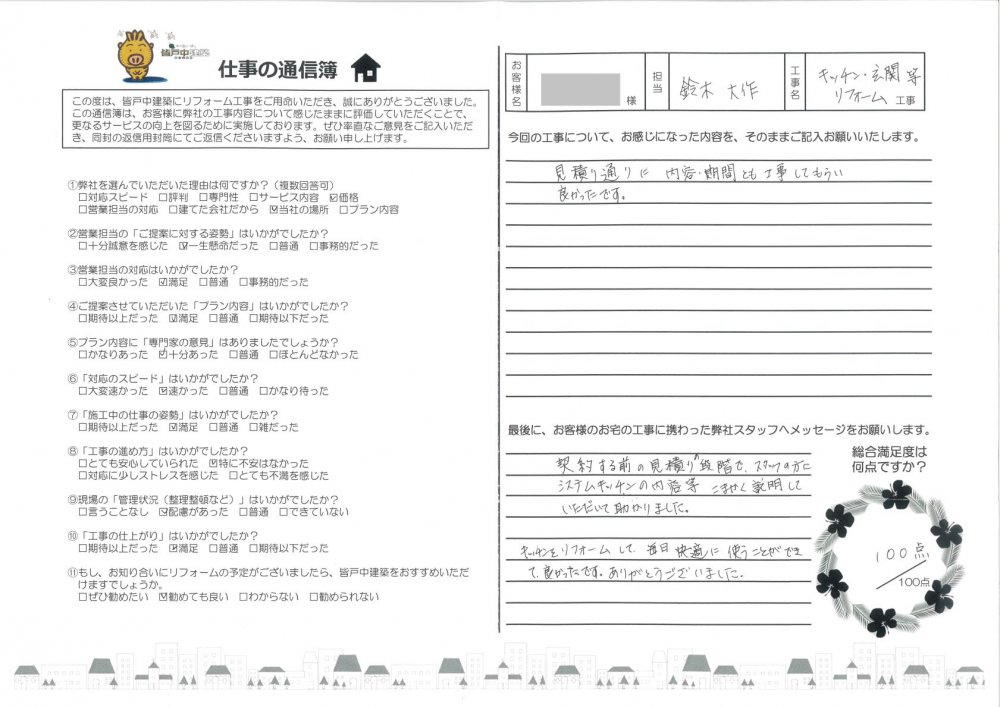 皆戸中建築
仕事の通信簿
この度は、皆戸中建築にリフォーム工事をご用命いただき、誠にありがとうございました。
この通信簿は、お客様に弊社の工事内容について感じたままに評価していただくことで、
更なるサービスの向上を図るために実施しております。ぜひ率直なご意見をご記入いただ
き、同封の返信用封筒にてご返信くださいますよう、お願い申し上げます。
①弊社を選んでいただいた理由は何ですか？（複数回答可）
□対応スピード □評判 □専門性 □サービス内容 ☑価格
□営業担当の対応 □建てた会社だから ☑当社の場所 □プラン内容
②営業担当の「ご提案に対する姿勢」はいかがでしたか？
□十分誠意を感じた ☑一生懸命だった □普通 □事務的だった
③営業担当の対応はいかがでしたか？
□大変良かった ☑満足 □普通 □事務的だった
④ご提案させていただいた「プラン内容」はいかがでしたか？
□期待以上だった ☑満足 □普通 □期待以下だった
⑤プラン内容に「専門家の意見」はありましたでしょうか？
□かなりあった ☑十分あった □普通 □ほとんどなかった
⑥「対応のスピード」はいかがでしたか？
□大変速かった ☑速かった □普通 □かなり待った
⑦「施工中の仕事の姿勢」はいかがでしたか？
□期待以上だった ☑満足 □普通 □雑だった
⑧「工事の進め方」はいかがでしたか？
□とても安心していられた ☑特に不安はなかった
□対応に少しストレスを感じた □とても不満を感じた
⑨現場の「管理状況（整理整頓など）」はいかがでしたか？
□言うことなし ☑配慮があった □普通 □できていない
⑩「工事の仕上がり」はいかがでしたか？
□期待以上だった ☑満足 □普通 □期待以下だった
⑪もし、お知り合いにリフォームの予定がございましたら、皆戸中建築をおすすめいただ
けますでしょうか。
□ぜひ勧めたい ☑勧めても良い □わからない □勧められない
お客様名 様 担当 鈴木 大作 工事名 キッチン・玄関 等
リフォーム 工事
今回の工事について、お感じになった内容を、そのままご記入お願いいたします。
見積り通りに 内容・期間とも工事してもらい
良かったです。
最後に、お客様のお宅の工事に携わった弊社スタッフへメッセージをお願いします。
契約する前の見積り段階で、スタッフの方に
システムキッチンの内容等 こまかく説明して
いただいて助かりました。
キッチンをリフォームして、毎日快適に使うことができ
て、良かったです。ありがとうございました。
総合満足度は
何点ですか？
100点
100点